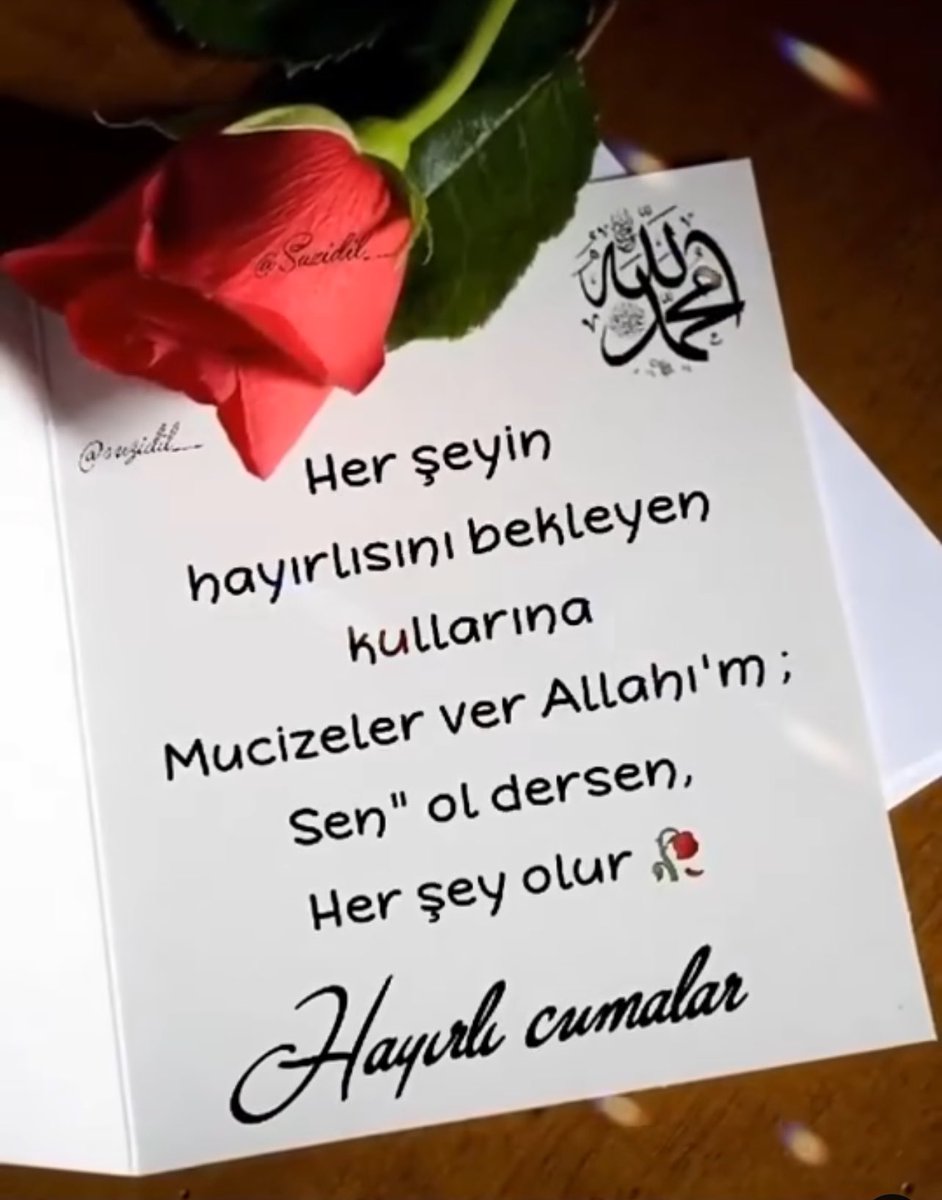 @Suzidil__
@suzidil__
Her şeyin
hayırlısını bekleyen
kullarına
Mucizeler ver Allahı'm ;
Sen" ol dersen,
Her şey olur 🥀
Hayırlı cumalar